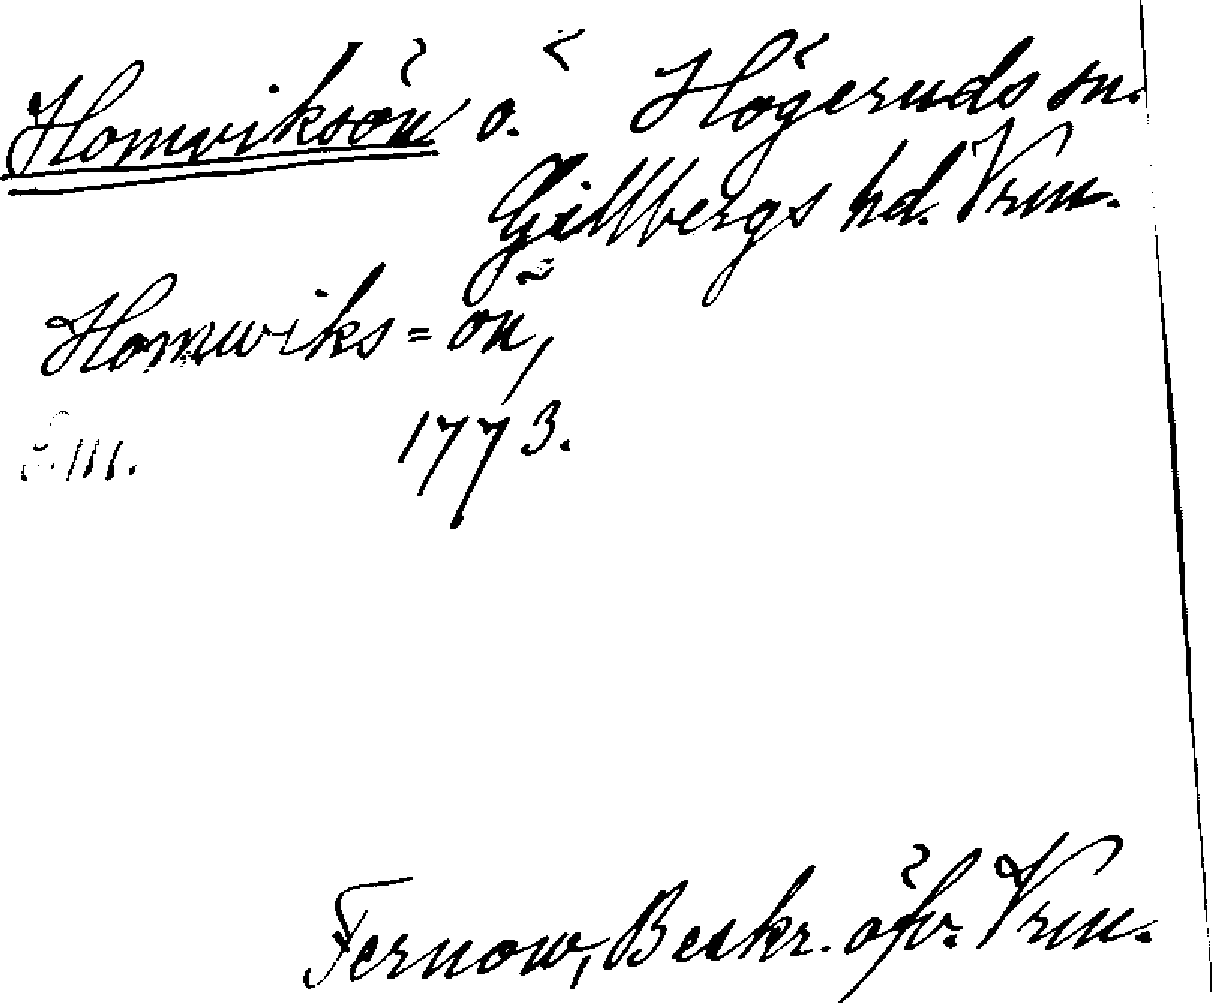 Homviksön ö. Högeruds sn.
Gillbergs hd. Vrm.
Homwiks=ön,
1773.
Fernow, Beskr. öfv. Vrm.